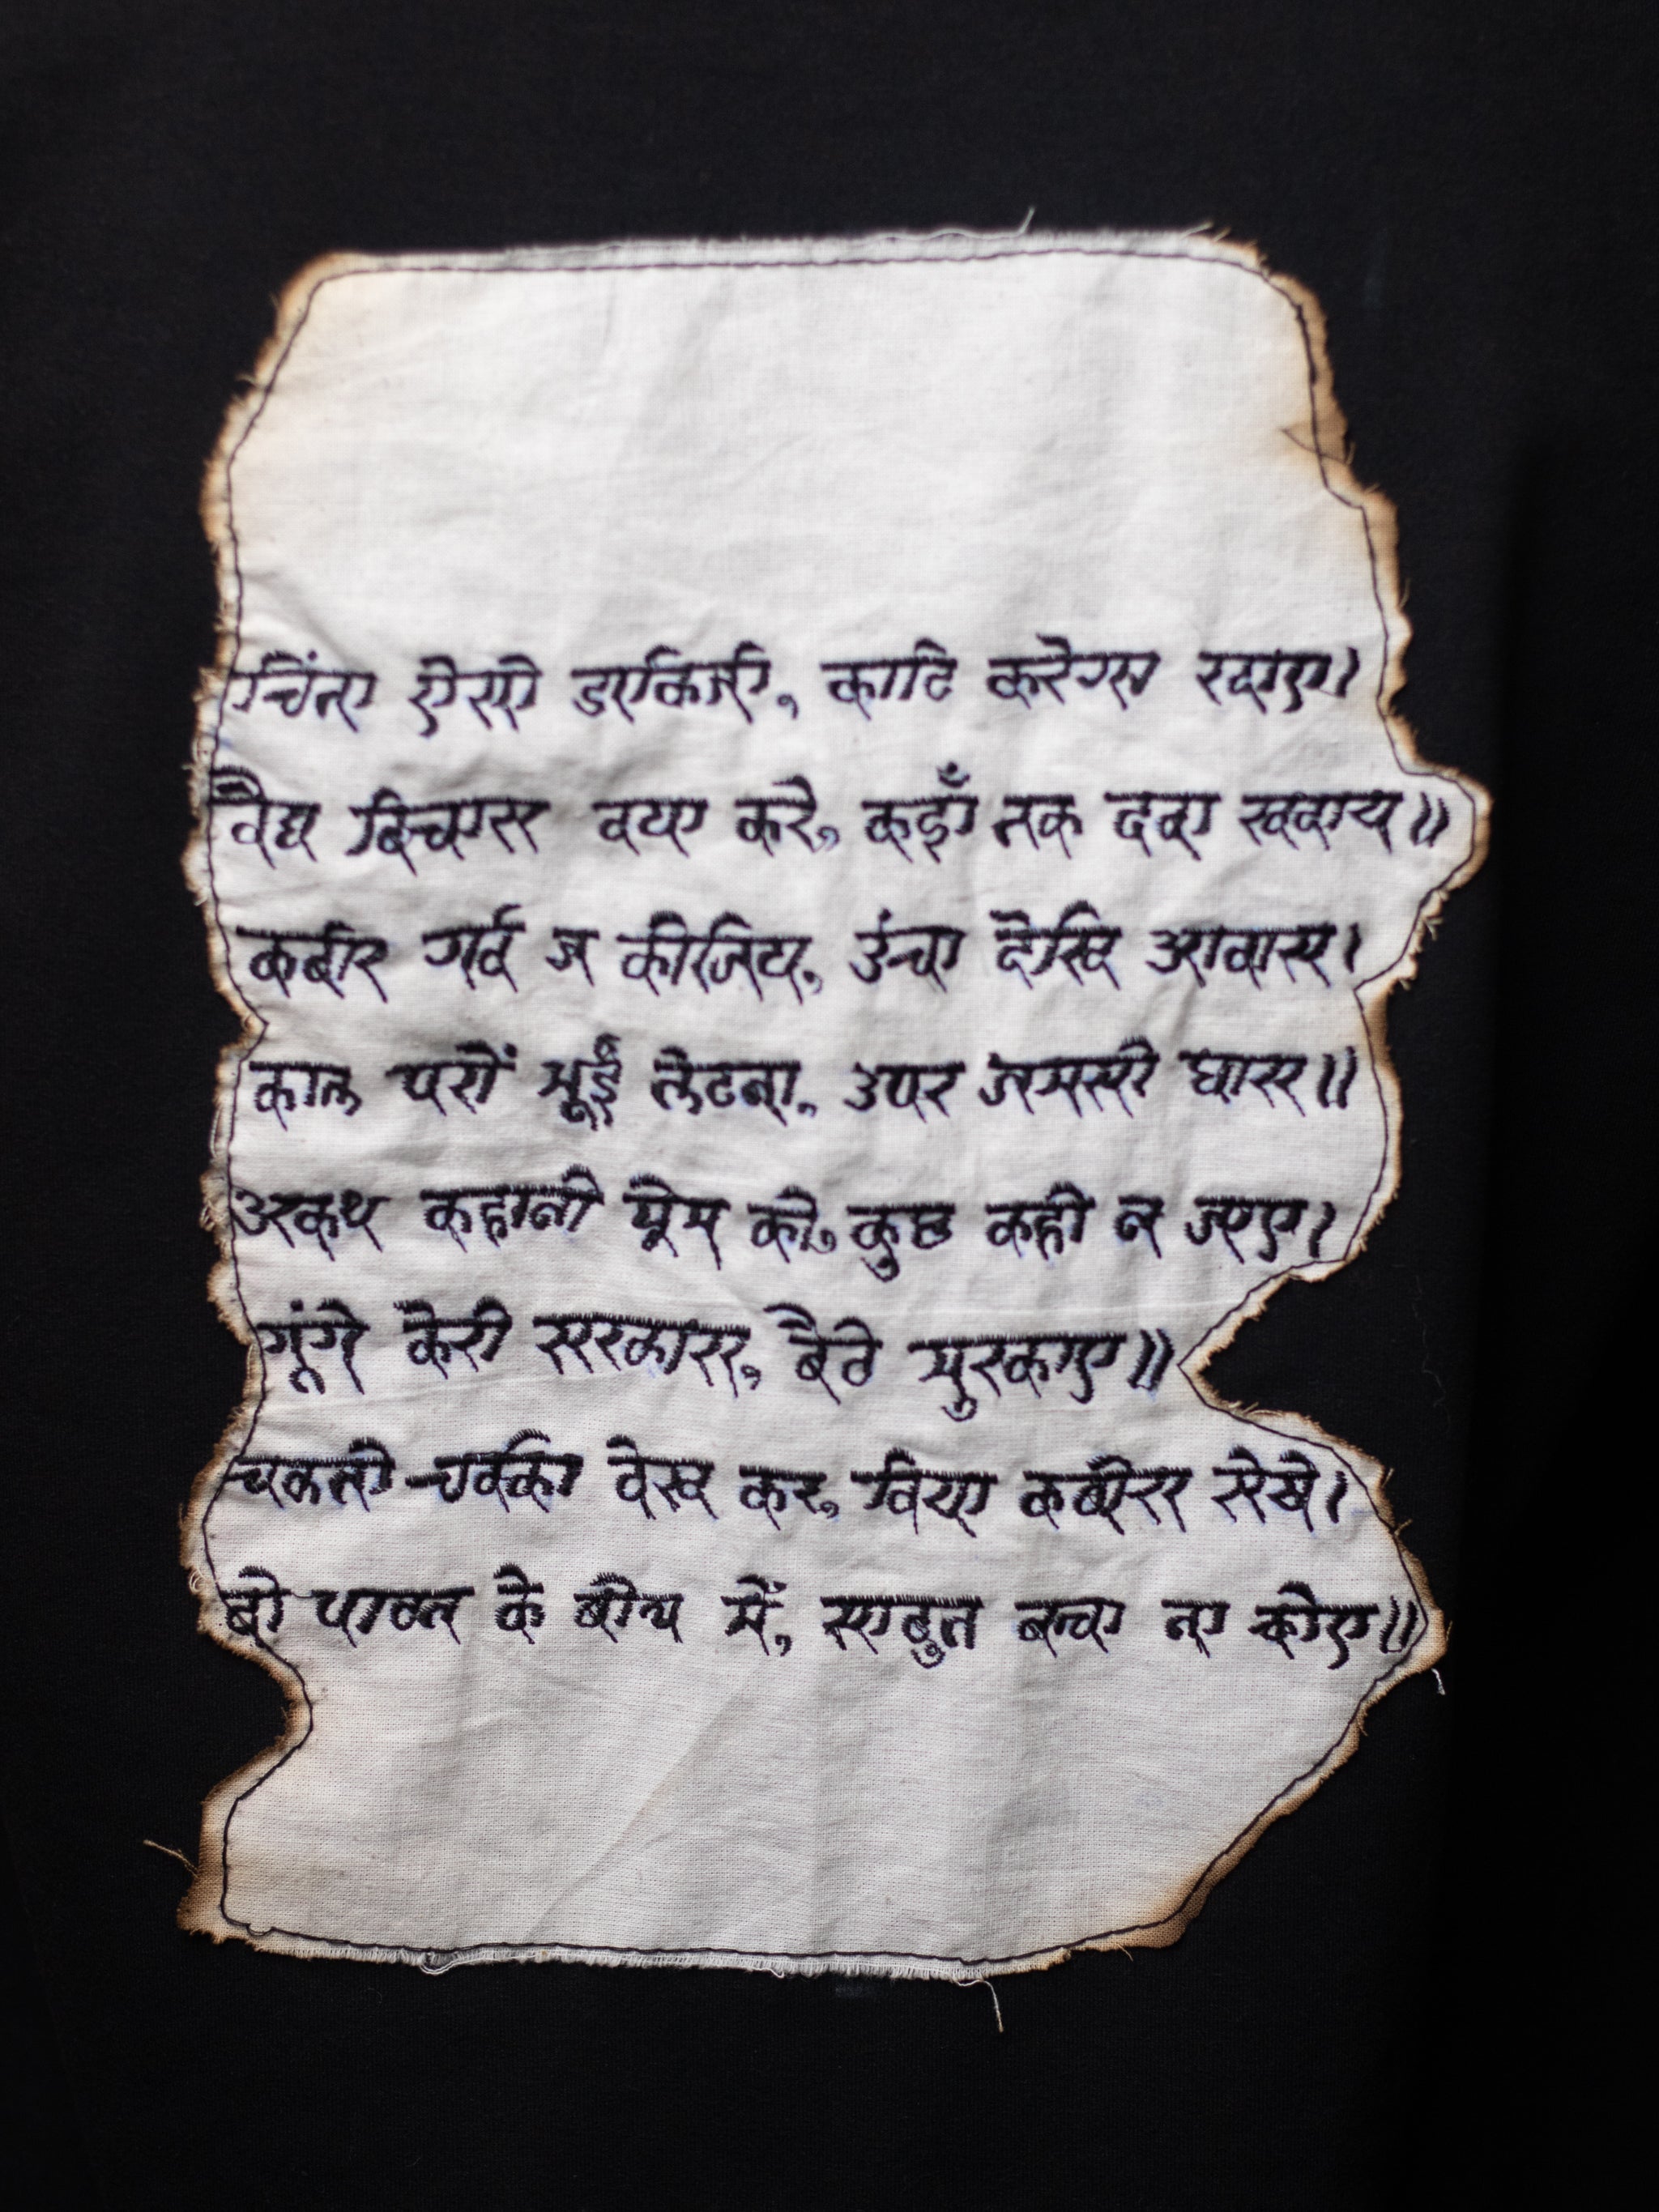 चिंता ऐसी डाकिनी, काटि करेजा खाए।
वैद्य बिचारा क्या करे, कहाँ तक दवा खवाय॥
कबीर गर्व न कीजिए, उंचा देखि आवास।
काल परों भूईं लेटना, उपर जमसी घास॥
अकथ कहानी प्रेम की, कुछ कही न जाए।
गूंगे केरी सरकारा, बैठे मुस्काए॥
चलती चक्की देख कर, दिया कबीरा रोये।
दो पाटन के बीच में, साबुत बचा ना कोए॥